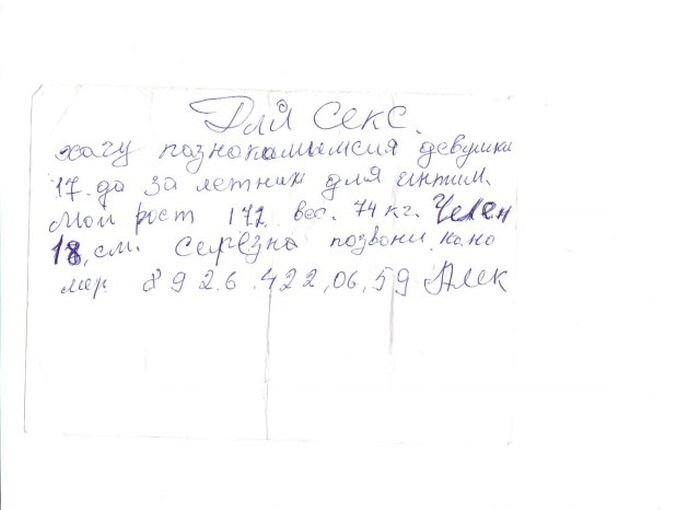 Для секс.
хачу познокамымсия девушка
17. до За летних для интим.
Мой рост 172 вес. 74 кг. Челен
18, см. Серёзна позвони. на но
мер. 8 9 2.6 .422,06,59 Алек